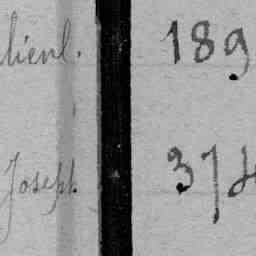 lienl. 189
Joseph. 374